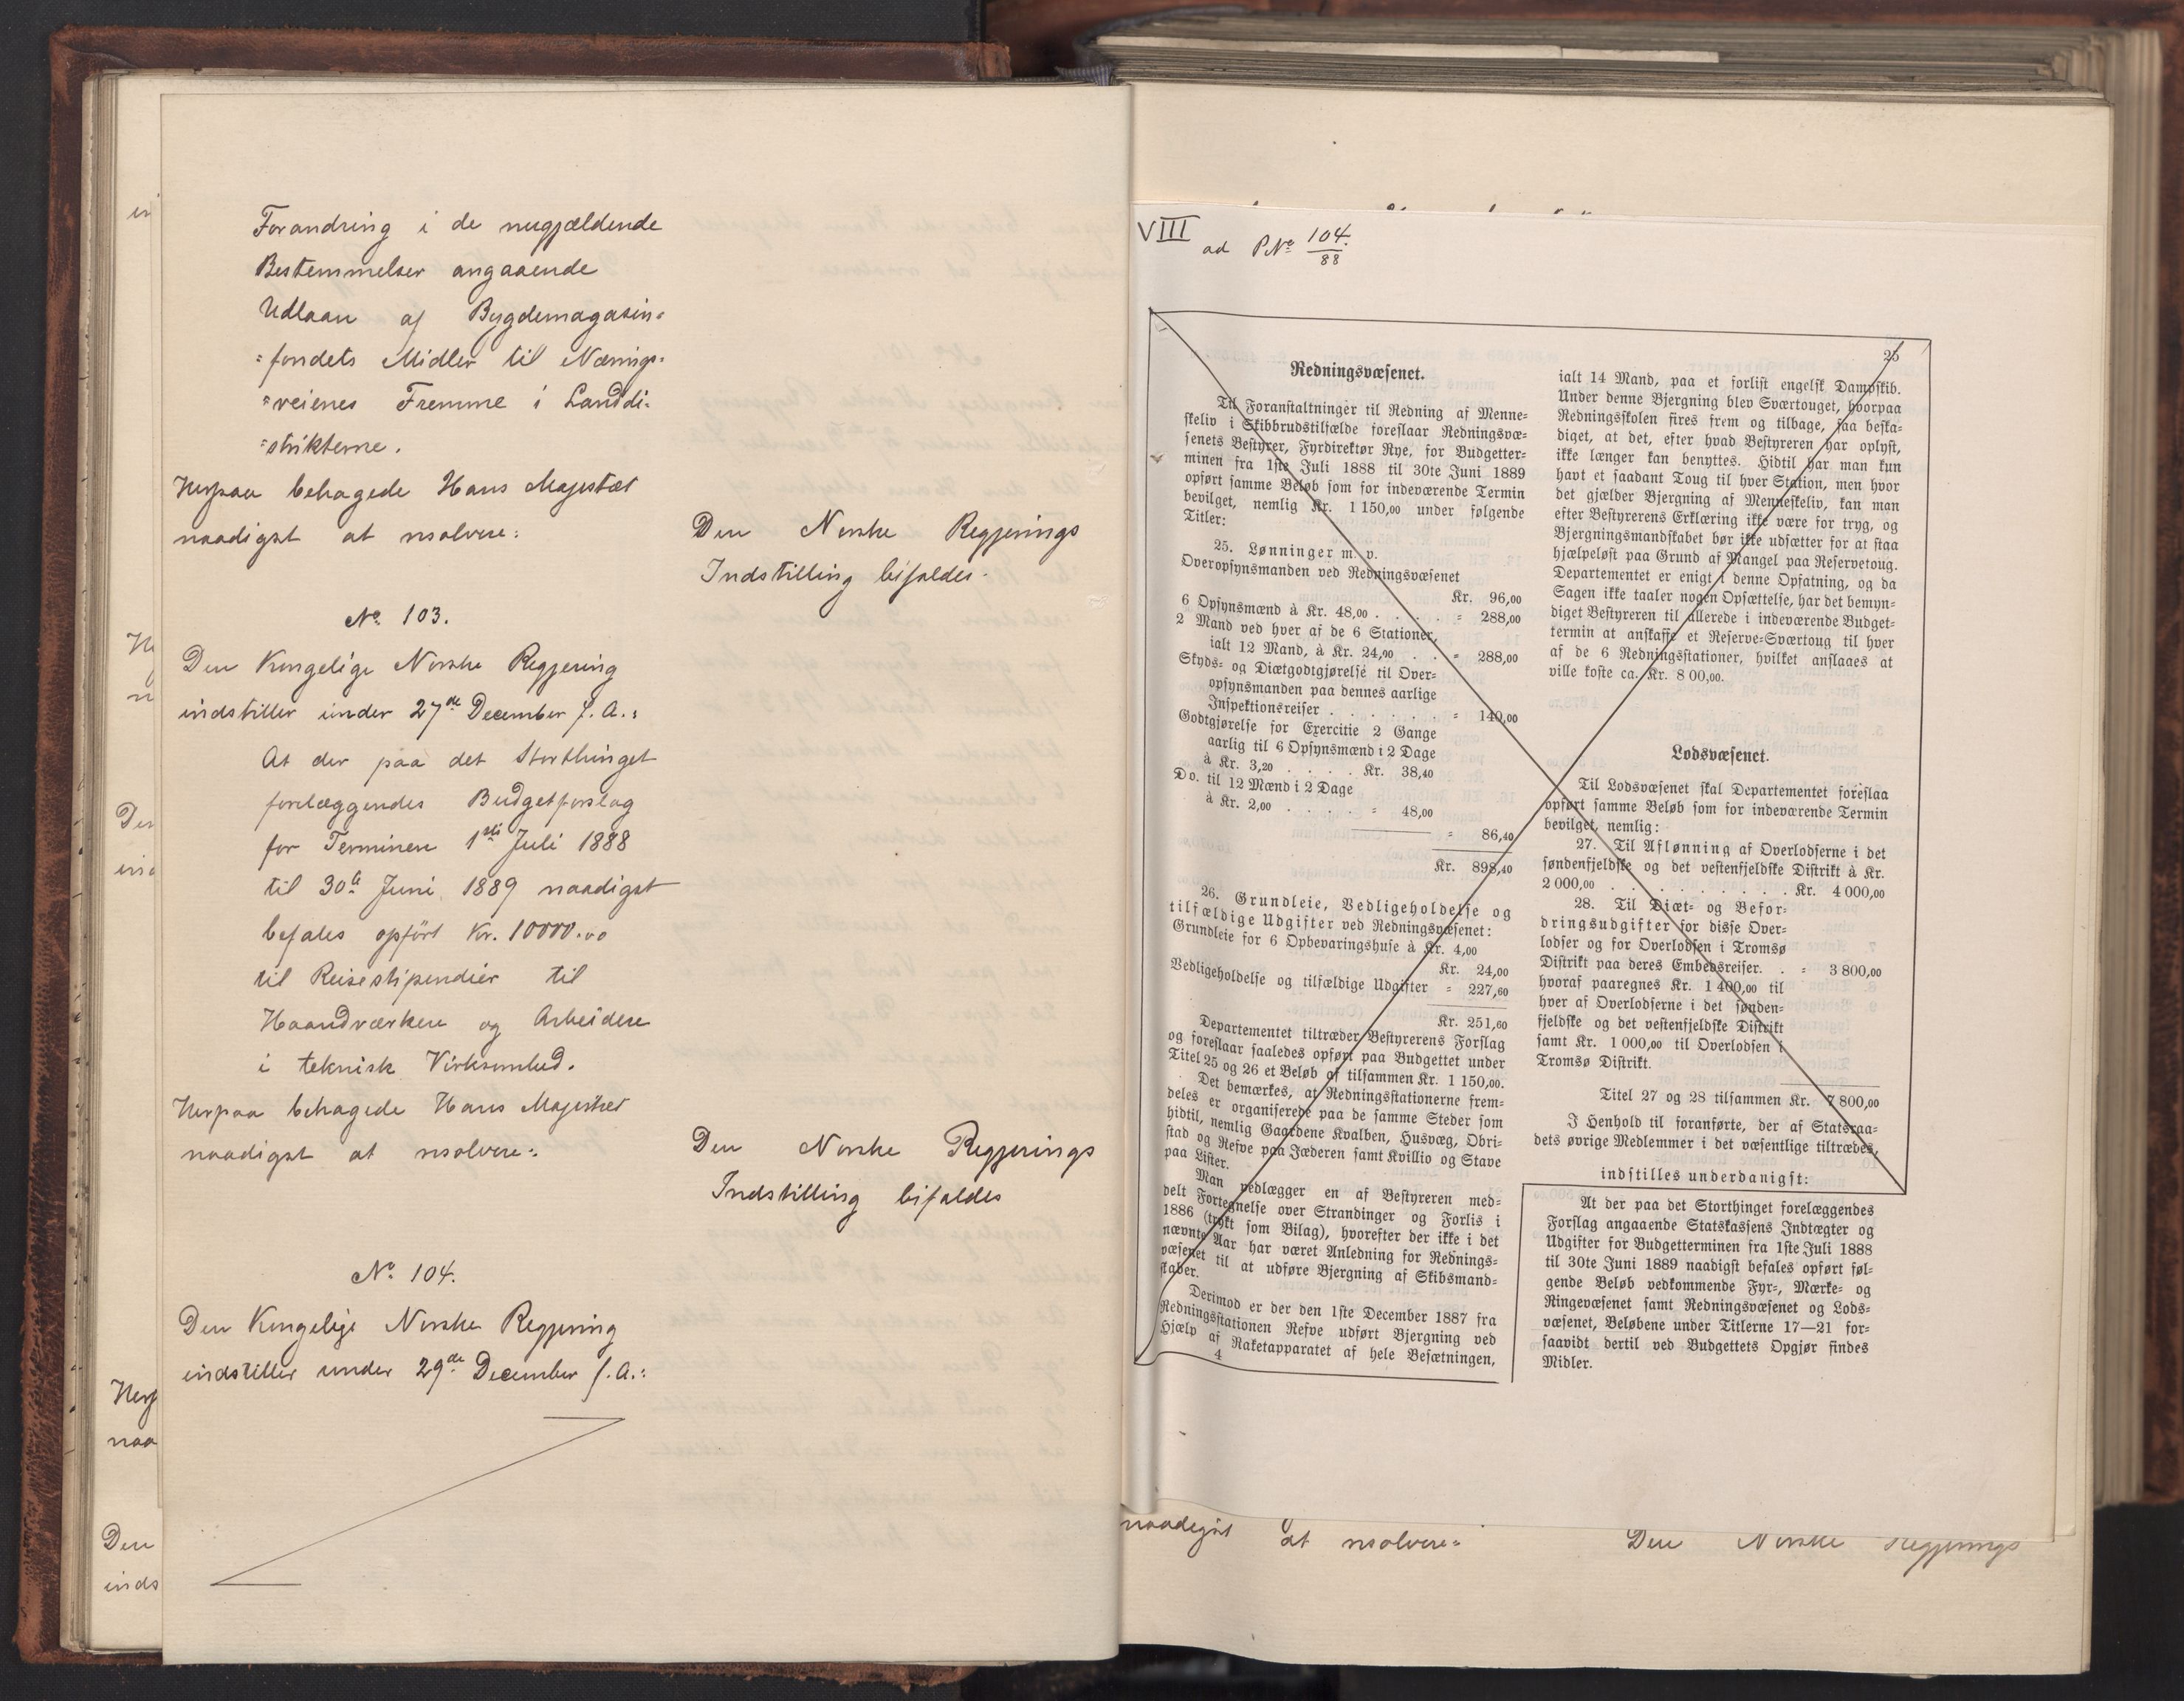 Forandring i de nugjældende
Bestemmelser angaaende
Udlaan af Bygdemagasin=
=fondets Midler til Nærings=
=veienes Fremme i Landdi=
=strikterne.
Herpaa behagede Hans Majestæt
naadigst at resolvere:
Den Norske Regjerings
Indstilling bifaldes.
No 103.
Den Kongelige Norske Regjering
indstiller under 27de December f. A.:
At der paa det Storthinget
forelæggendes Budgetforslag
for Terminen 1ste Juli 1888
til 30te Juni 1889 naadigst
befales opført Kr. 10000.00
til Reisestipendier til
Haandværkere og Arbeidere
i teknisk Virksomhed.
Herpaa behagede Hans Majestæt
naadigst at resolvere:
Den Norske Regjerings
Indstilling bifaldes
No 104.
Den Kongelige Norske Regjering
indstiller under 29de December f. A.:
er
He
n
Den
ind
Herp
naa
Den
inds
VIII
ad PNo 104/88
25
Redningsvæsenet.
Til Foranstaltninger til Redning af Menne=
skeliv i Skibbrudstilfælde foreslaar Redningsvæ=
senets Bestyrer, Fyrdirektør Rye, for Budgetter=
minen fra 1ste Juli 1888 til 30te Juni 1889
opført samme Beløb som for indeværende Termin
bevilget, nemlig Kr. 1 150,00 under følgende
Titler:
25. Lønninger m. v.
Overopsynsmanden ved Redningsvæsenet
Kr. 96,00
6 Opsynsmænd à Kr. 48,00 . . . . = 288,00
2 Mand ved hver af de 6 Stationer,
ialt 12 Mand, à Kr. 24,00 . . = 288,00
Skyds- og Diætgodtgjørelse til Over=
opsynsmanden paa dennes aarlige
Inspektionsreiser . . . . . . = 140,00
Godtgjørelse for Exercitie 2 Gange
aarlig til 6 Opsynsmænd i 2 Dage
à Kr. 3,20 . . . . Kr. 38,40
Do. til 12 Mænd i 2 Dage
à Kr. 2,00 . . . . = 48,00
= 86,40
Kr. 898,40
26. Grundleie, Vedligeholdelse og
tilfældige Udgifter ved Redningsvæsenet:
Grundleie for 6 Opbevaringshuse à Kr. 4,00
Kr. 24,00
Vedligeholdelse og tilfældige Udgifter = 227,60
Kr. 251,60
Departementet tiltræder Bestyrerens Forslag
og foreslaar saaledes opført paa Budgettet under
Titel 25 og 26 et Beløb af tilsammen Kr. 1 150,00.
Det bemærkes, at Redningsstationerne frem=
deles er organiserede paa de samme Steder som
hidtil, nemlig Gaardene Kvalben, Husvæg, Obri=
stad og Refve paa Jæderen samt Kvillio og Stave
paa Lister.
Man vedlægger en af Bestyreren med=
delt Fortegnelse over Strandinger og Forlis i
1886 (trykt som Bilag), hvorefter der ikke i det
nævnte Aar har været Anledning for Rednings=
væsenet til at udføre Bjergning af Skibsmand=
skaber.
Derimod er der den 1ste December 1887 fra
Redningsstationen Refve udført Bjergning ved
Hjælp af Raketapparatet af hele Besætningen,
4
ialt 14 Mand, paa et forlist engelsk Dampskib.
Under denne Bjergning blev Sværtouget, hvorpaa
Redningsstolen fires frem og tilbage, saa beska=
diget, at det, efter hvad Bestyreren har oplyst,
ikke længer kan benyttes. Hidtil har man kun
havt et saadant Toug til hver Station, men hvor
det gjælder Bjergning af Menneskeliv, kan man
efter Bestyrerens Erklæring ikke være for tryg, og
Bjergningsmandskabet bør ikke udsætter for at staa
hjælpeløst paa Grund af Mangel paa Reservetoug.
Departementet er enigt i denne Opfatning, og da
Sagen ikke taaler nogen Opsættelse, har det bemyn=
diget Bestyreren til allerede i indeværende Budget=
termin at anskaffe et Reserve=Sværtoug til hver
af de 6 Redningsstationer, hvilket anslaaes at
ville koste ca. Kr. 800,00.
Lodsvæsenet.
Til Lodsvæsenet skal Departementet foreslaa
opført samme Beløb som for indeværende Termin
bevilget, nemlig:
27. Til Aflønning af Overlodserne i det
søndenfjeldske og det vestenfjeldske Distrikt à Kr.
2 000,00 . . . . . . . . . . Kr. 4 000,00
28. Til Diæt- og Befor=
dringsudgifter for disse Over=
lodser og for Overlodsen i Tromsø
Distrikt paa deres Embedsreiser. . = 3 800,00
hvoraf paaregnes Kr. 1 400,00 til
hver af Overlodserne i det sønden=
fjeldske og det vestenfjeldske Distrikt
samt Kr. 1 000,00 til Overlodsen i
Tromsø Distrikt.
Titel 27 og 28 tilsammen Kr. 7 800,00
I Henhold til foranførte, der af Statsraa=
dets øvrige Medlemmer i det væsentlige tiltrædes,
indstilles underdanigst:
At der paa det Storthinget forelæggendes
Forslag angaaende Statskassens Indtægter og
Udgifter for Budgetterminen fra 1ste Juli 1888
til 30te Juni 1889 naadigst befales opført føl=
gende Beløb vedkommende Fyr-, Mærke- og
Ringevæsenet samt Redningsvæsenet og Lods=
væsenet, Beløbene under Titlerne 17—21 for=
saavidt dertil ved Budgettets Opgjør findes
Midler.
naadigst at resolvere:
Den Norske Regjerings